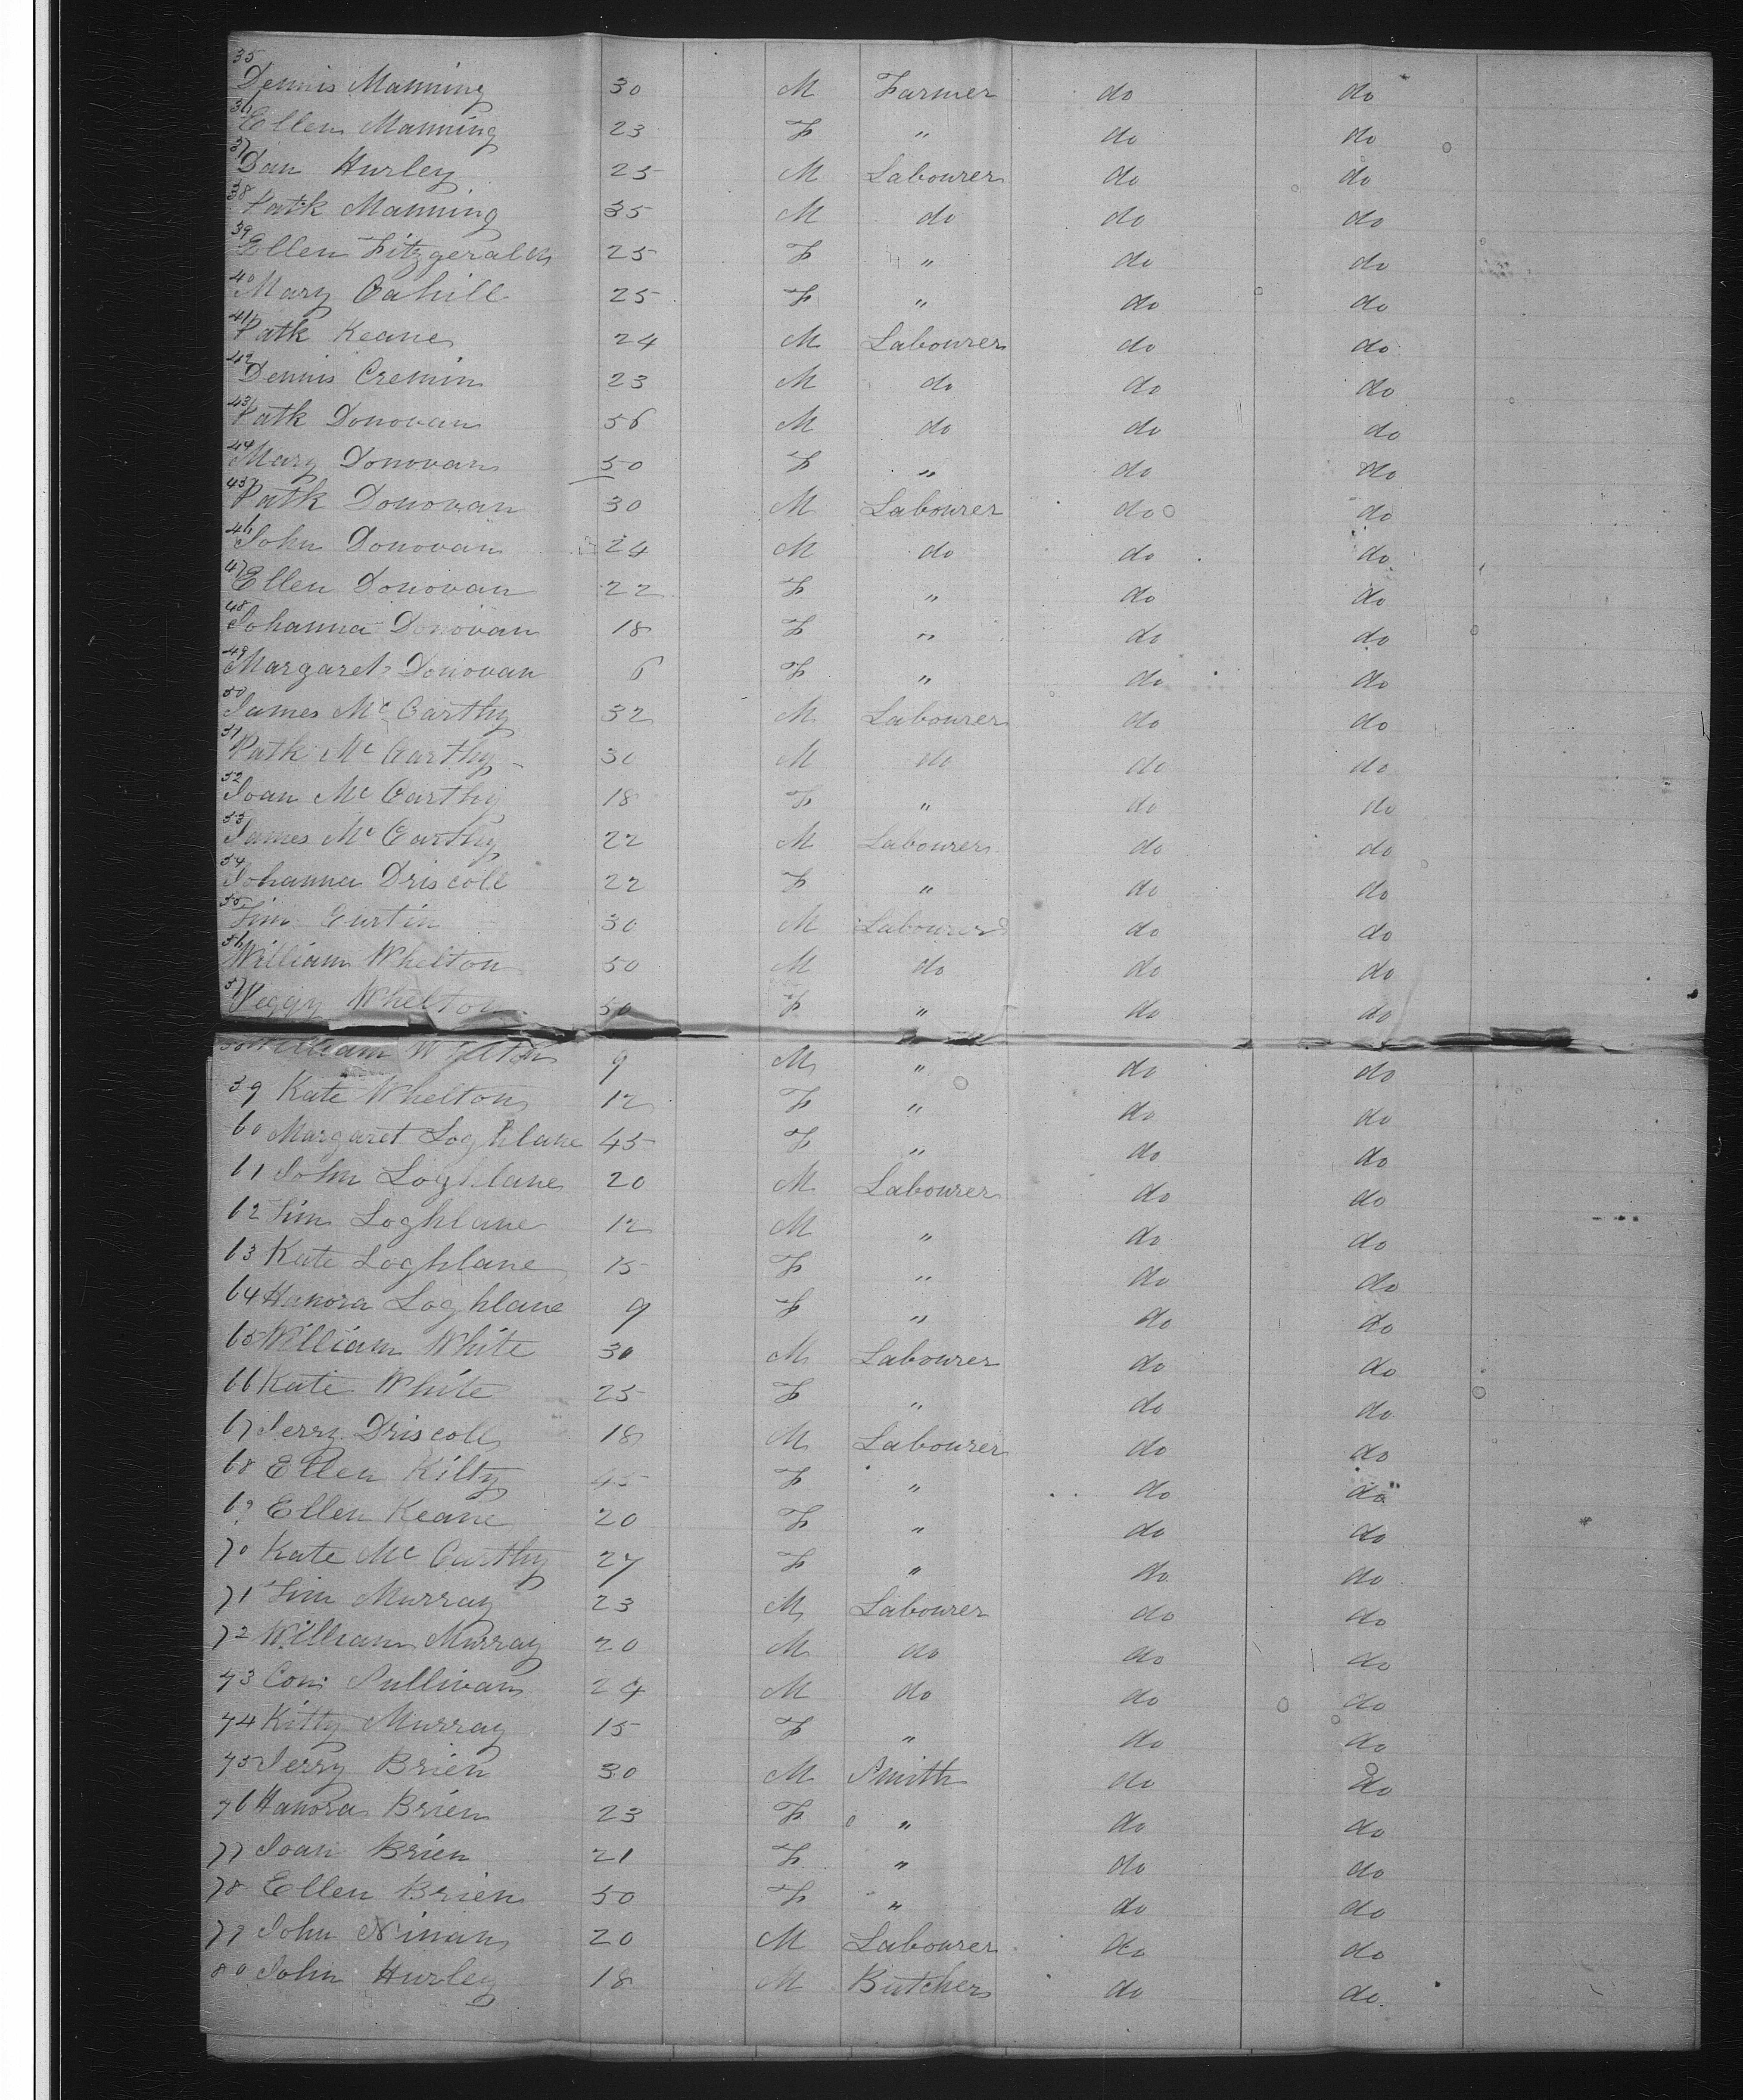 35 Dennis Manning 30 M Farmer do do
36 Ellen Manning 23 F " do do
37 Dan Hurley 25 M Labourer do do
38 Patk Manning 35 M do do do
39 Ellen Fitzgerald 25 F " do do
40 Mary Cahill 25 F " do do
41 Patk Keane 24 M Labourer do do
42 Dennis Cremin 23 M do do do
43 Patk Donovan 56 M do do do
44 Mary Donovan 50 F " do do
45 Patk Donovan 30 M Labourer do do
46 John Donovan 24 M do do do
47 Ellen Donovan 22 F " do do
48 Johanna Donovan 18 F " do do
49 Margaret Donovan 6 F " do do
50 James Mc Carthy 32 M Labourer do do
51 Patk Mc Carthy 30 M do do do
52 Joan Mc Carthy 18 F " do do
53 James Mc Carthy 22 M Labourer do do
54 Johanna Driscoll 22 F " do do
55 Tim Curtin 30 M Labourer do do
56 William Whelton 50 M do do do
57 Peggy Whelton 50 F " do do
58 William Whelton 9 M " do do
59 Kate Whelton 12 F " do do
60 Margaret Loghlane 45 F " do do
61 John Loghlane 20 M Labourer do do
62 Tim Loghlane 12 M " do do
63 Kate Loghlane 15 F " do do
64 Hanora Loghlane 9 F " do do
65 William White 30 M Labourer do do
66 Kate White 25 F " do do
67 Jerry Driscoll 18 M Labourer do do
68 Ellen Kilty 45 F " do do
69 Ellen Keane 20 F " do do
70 Kate Mc Carthy 27 F " do do
71 Tim Murray 23 M Labourer do do
72 William Murray 20 M do do do
73 Con: Sullivan 24 M do do do
74 Kitty Murray 15 F " do do
75 Jerry Brien 30 M Smith do do
76 Hanora Brien 23 F " do do
77 Joan Brien 21 F " do do
78 Ellen Brien 50 F " do do
79 John Ninan 20 M Labourer do do
80 John Hurley 18 M Butcher do do